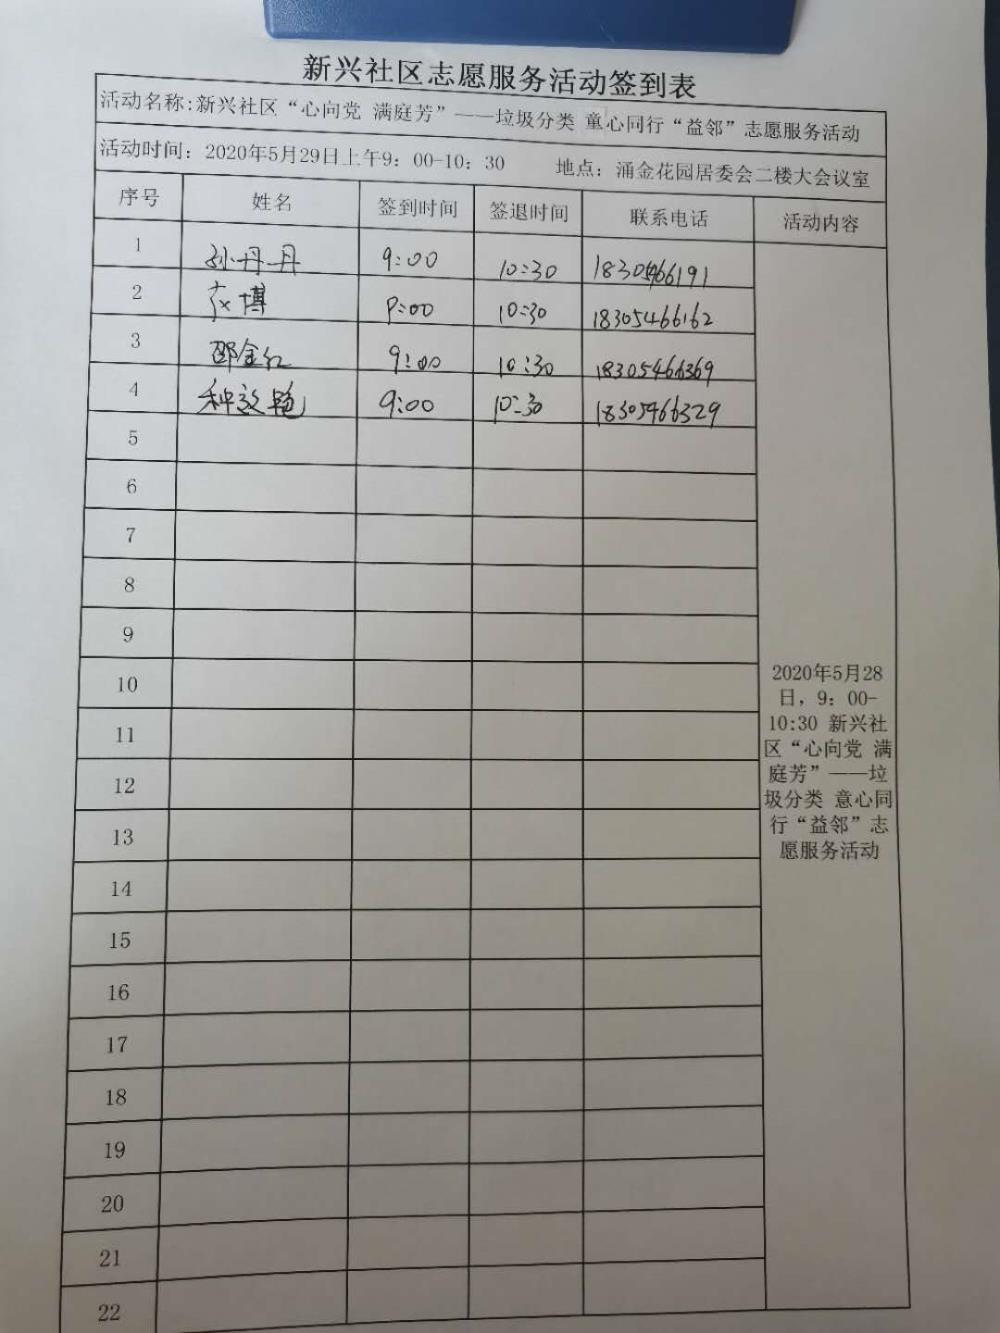 新兴社区志愿服务活动签到表
活动名称:新兴社区“心向党 满庭芳”——垃圾分类 童心同行“益邻”志愿服务活动
活动时间：2020年5月29日上午9：00-10：30 地点：涌金花园居委会二楼大会议室
序号 姓名 签到时间 签退时间 联系电话 活动内容
1 孙丹丹 9:00 10:30 18305466191
2 博 9:00 10:30 18305466162
3 邵金红 9:00 10:30 18305466369
4 种效艳 9:00 10:30 18305466329
5
6
7
8
9
10
11
12
13
14
15
16
17
18
19
20
21
22
2020年5月28
日，9：00-
10:30 新兴社
区“心向党 满
庭芳”——垃
圾分类 意心同
行“益邻”志
愿服务活动